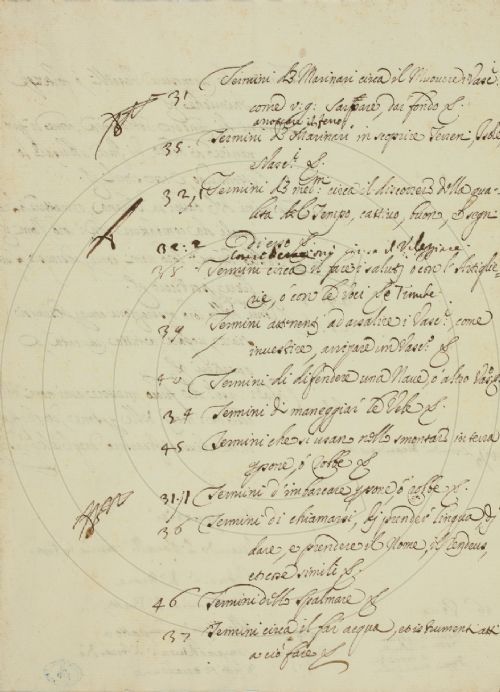 31 Termini di Marinari circa il Muovere i Vasc.
come v:g: Sarpare, dar fondo &.
annodare il ferro
35. Termini di Marinari in scoprire Terren, Isole
Vasc.i &.
32,1 Termini di med.mi circa il discorrere della qua-
lità del Tempo, cattivo, buono,
32:2
33 Termini circa il fare i saluti, o con l'Artiglie-
rie, o con le Voci, &
39 Termini attenenti ad assalire i Vasc.i come
investire, in Vasc.o &
40 Termini di difendere una Nave, o altro Vasc.o
34 Termini di maneggiar le Vele &.
45 Termini che si usan nello smontare in terra
persone, o robbe &
31.11 Termini d'imbarcare persone o robbe &.
36 Termini di chiamarsi, prender lingua
dare, e prendere il Nome, il
et cose simili &.
46 Termini dello Spalmare &
37 Termini circa il far acqua, et istrumenti atti
a ciò fare &